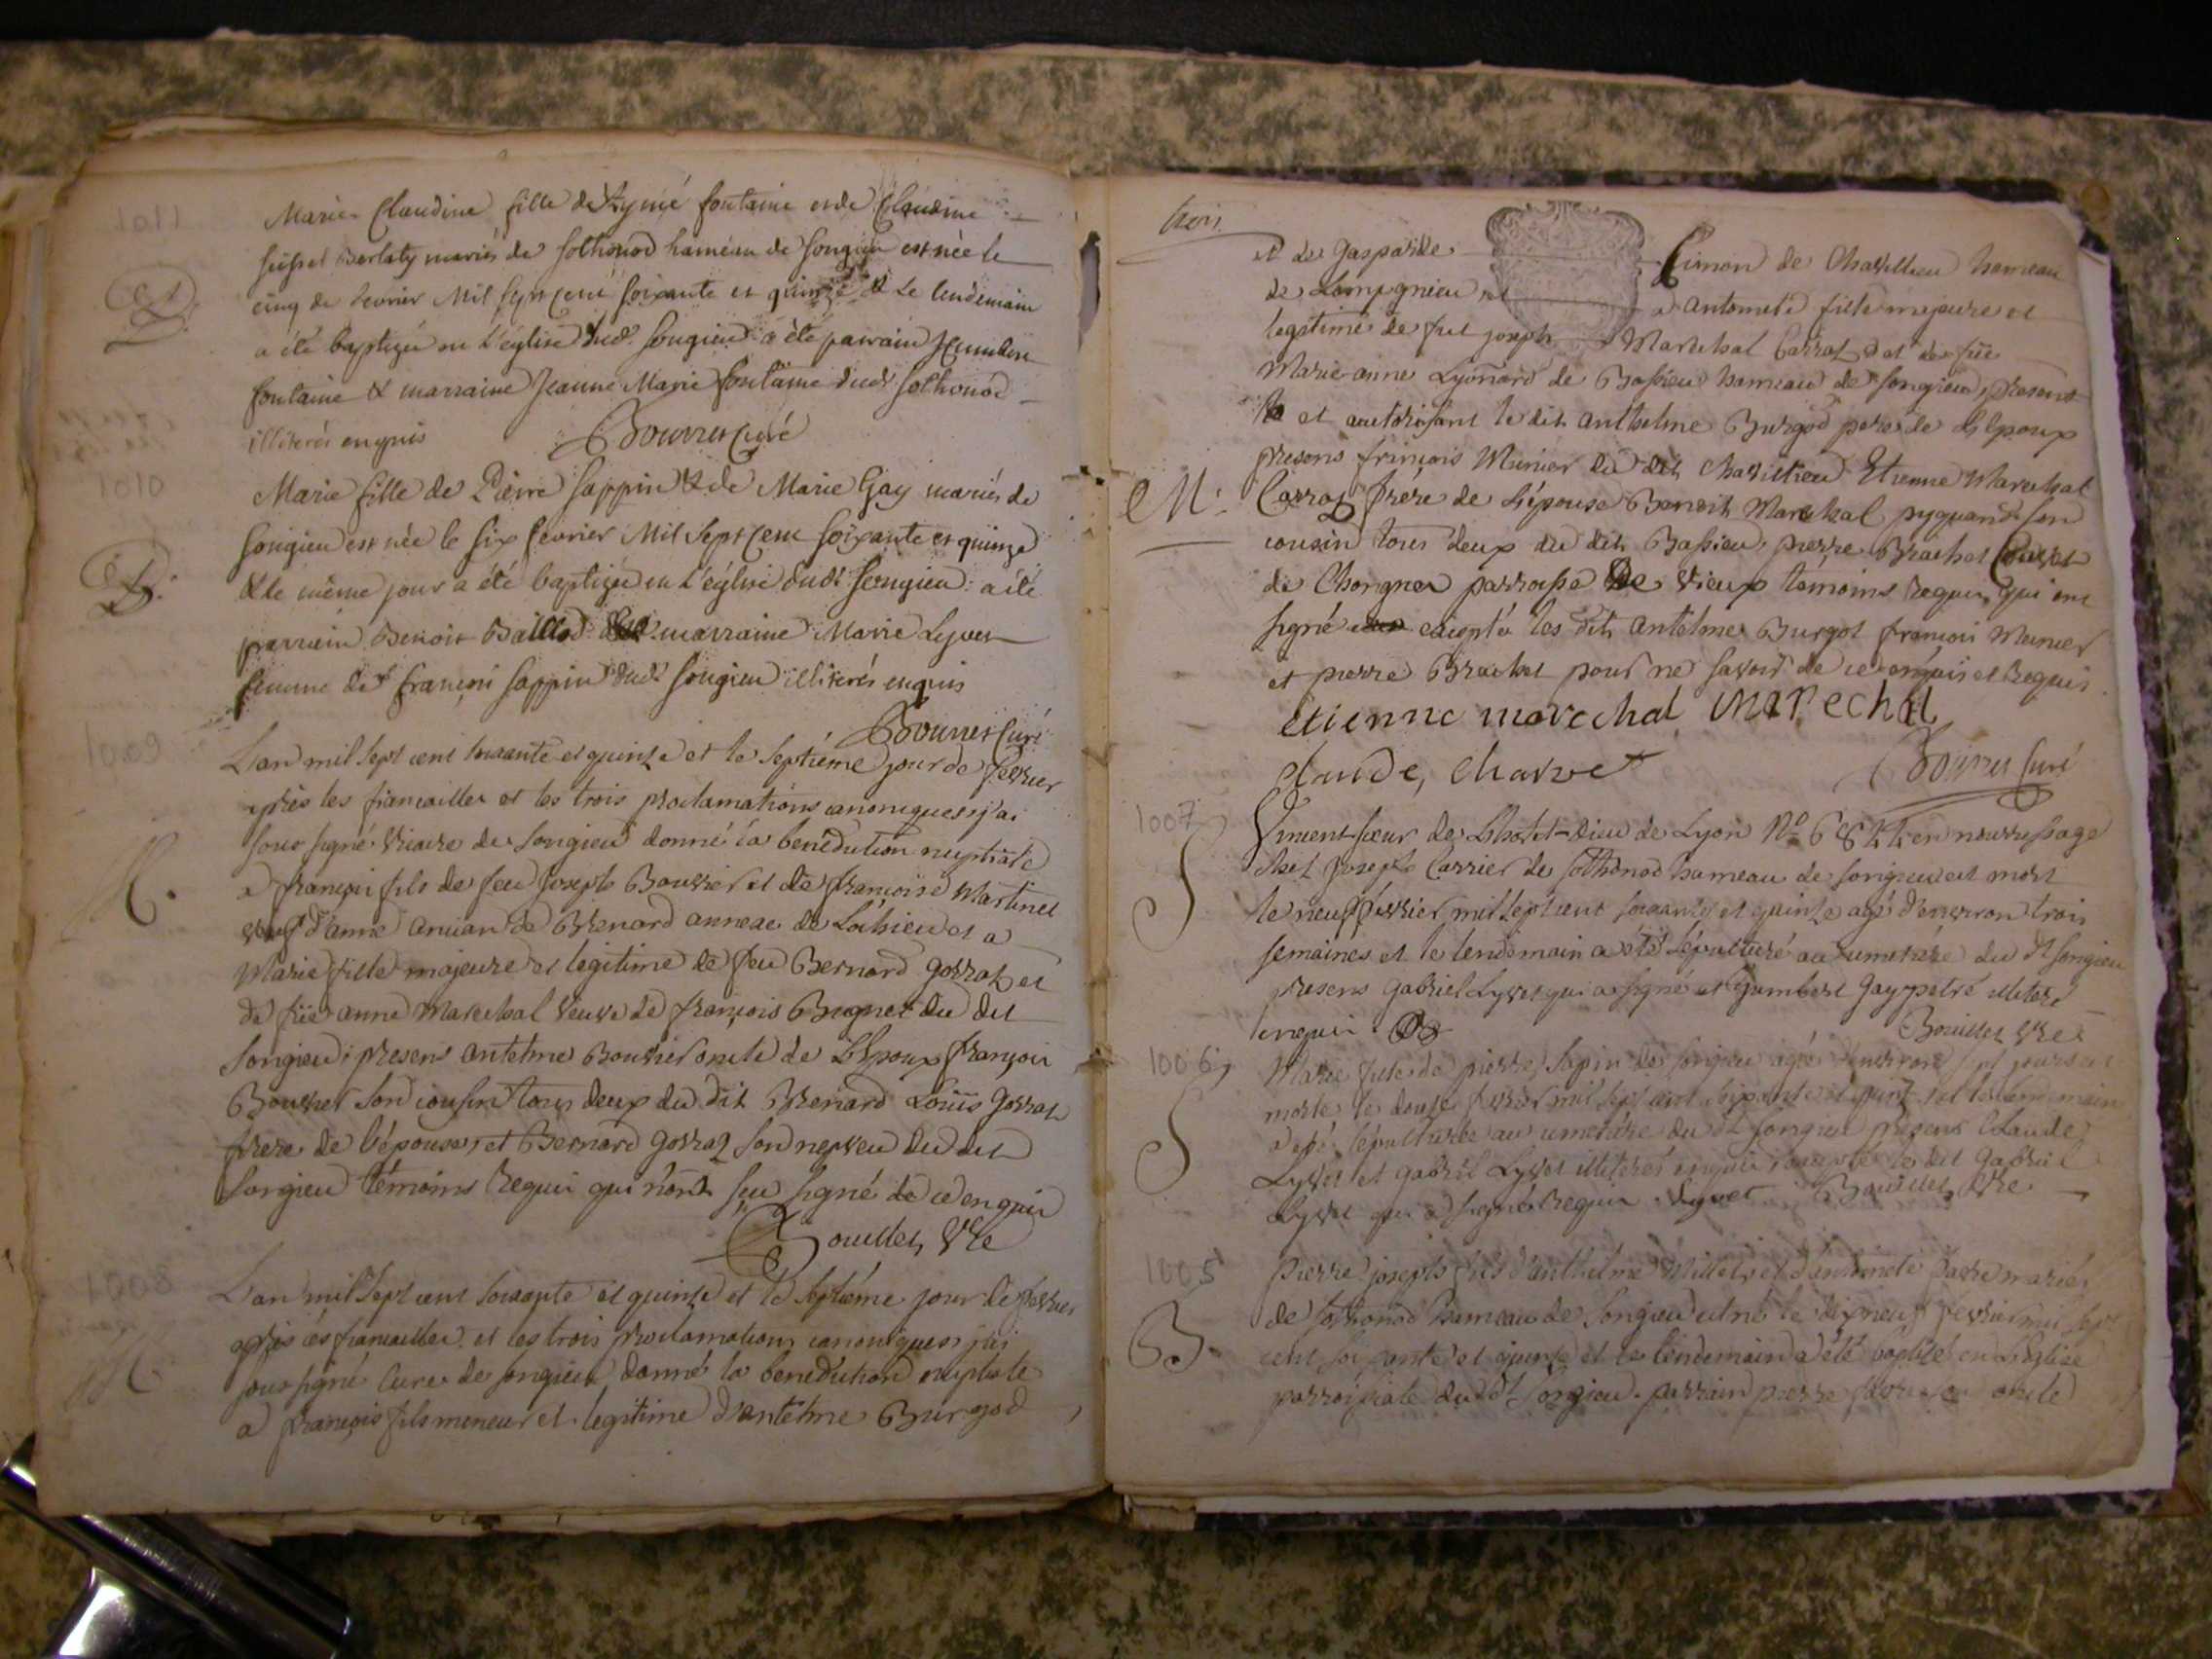 1011
Marie Claudine fille de Aymé fontaine et de Claudine
mariés de sothonod hameau de songieu est née le
cinq de fevrier mil sept cent soixante et quinze & le lendemain
a été baptizée en l'église dudt songieu a été parrain
fontaine & marraine Jeanne Marie fontaine dudt sothonod
B.
illiterés enquis Bouvier curé
1010
Marie fille de Pierre sappin & de Marie Gay mariés de
songieu est née le six fevrier mil sept cent soixante et quinze
B.
& le même jour a été baptizée en l'église dudt songieu a été
parrain Benoit Baillod marraine Marie Lyvet
femme de françois sappin dudt songieu illiterés enquis
Bouvier curé
1009
L'an mil sept cent soixante et quinze et le septième jour de fevrier
après les fiancailles et les trois proclamations canoniques j'ai
sous signé vicaire de songieu donné la benédiction nuptiale
M.
a françois fils de feu Joseph Bouvier et de françoise Martinet
veuf d'anne de Brenard annexe de Lochieu et a
Marie fille majeure et legitime de feu Bernard gorraz et
de füe anne Marechal veuve de françois Bugnet du dit
songieu; presens antelme Bouvier oncle de L'Epoux françois
Bouvier son cousin tous deux du dit Brenard Loüis gorraz
frere de l'épouse, et Bernard gorraz son nepveu du dit
songieu témoins requis qui n'ont sçu signé de ce enquis
Bouillet vre
1008
L'an mil sept cent soixante et quinze et le septième jour de fevrier
après les fiancailles et les trois proclamations canoniques j'ai
M
sous signé curé de songieu donné la benédiction nuptiale
a françois fils mineur et legitime d'antelme Burgod
trois
et de gasparde Simon de Chavillieu hameau
de Lompgnieu et a antoinete fille majeure et
legitime de feu joseph Marechal Carraz et de füe
Marie anne Lyonard de Bassieu hameau de songieu, presens
et autorisant le dit anthelme Burgod pere de L'Epoux
presens françois Munier du dit Chavillieu Etienne Marechal
M.
Carraz frere de L'épouse Benoit Marechal pyquand son
cousin tous deux du dit Bassieu, pierre Brachet
de Chongnes parroisse De vieux témoins requis qui ont
signé excepté les dits antelme Burgot françois Munier
et pierre Brachet pour ne savoir de ce enquis et Requis.
etienne marechal marechal
claude, charvet Bouvier curé
1007
Vincent sœur de L'hotel-dieu de Lyon N° en nourrissage
chez Joseph Carrier de sothonod hameau de songieu est mort
S
le neuf fevrier mil sept cent soixante et quinze agé d'environ trois
semaines et le lendemain a été sépulturé au cimetiére du dt songieu
presens gabriel Lyvet qui a signé et humbert Gay petré illiteré
enquis Bouillet vre
1006
Marie fille de pierre sapin de songieu agée d'environ sept jours est
morte le douze fevrier mil sept cent soixante et quinze et le lendemain
S
a été sépulturée au cimetiére du dt songieu presens Claude
Lyvet et gabriel Lyvet illiterés enquis excepté le dit gabriel
Lyvet qui a signé Requis Lyvet Bouillet vre
1005
Pierre joseph fils d'anthelme Millet et d'antoinete favre mariés
de sothonod hameau de songieu est né le dixneuf fevrier mil sept
B.
cent soixante et quinze et le lendemain a été baptisé en L'Eglise
parroissiale du dt songieu. parrain pierre favre son oncle